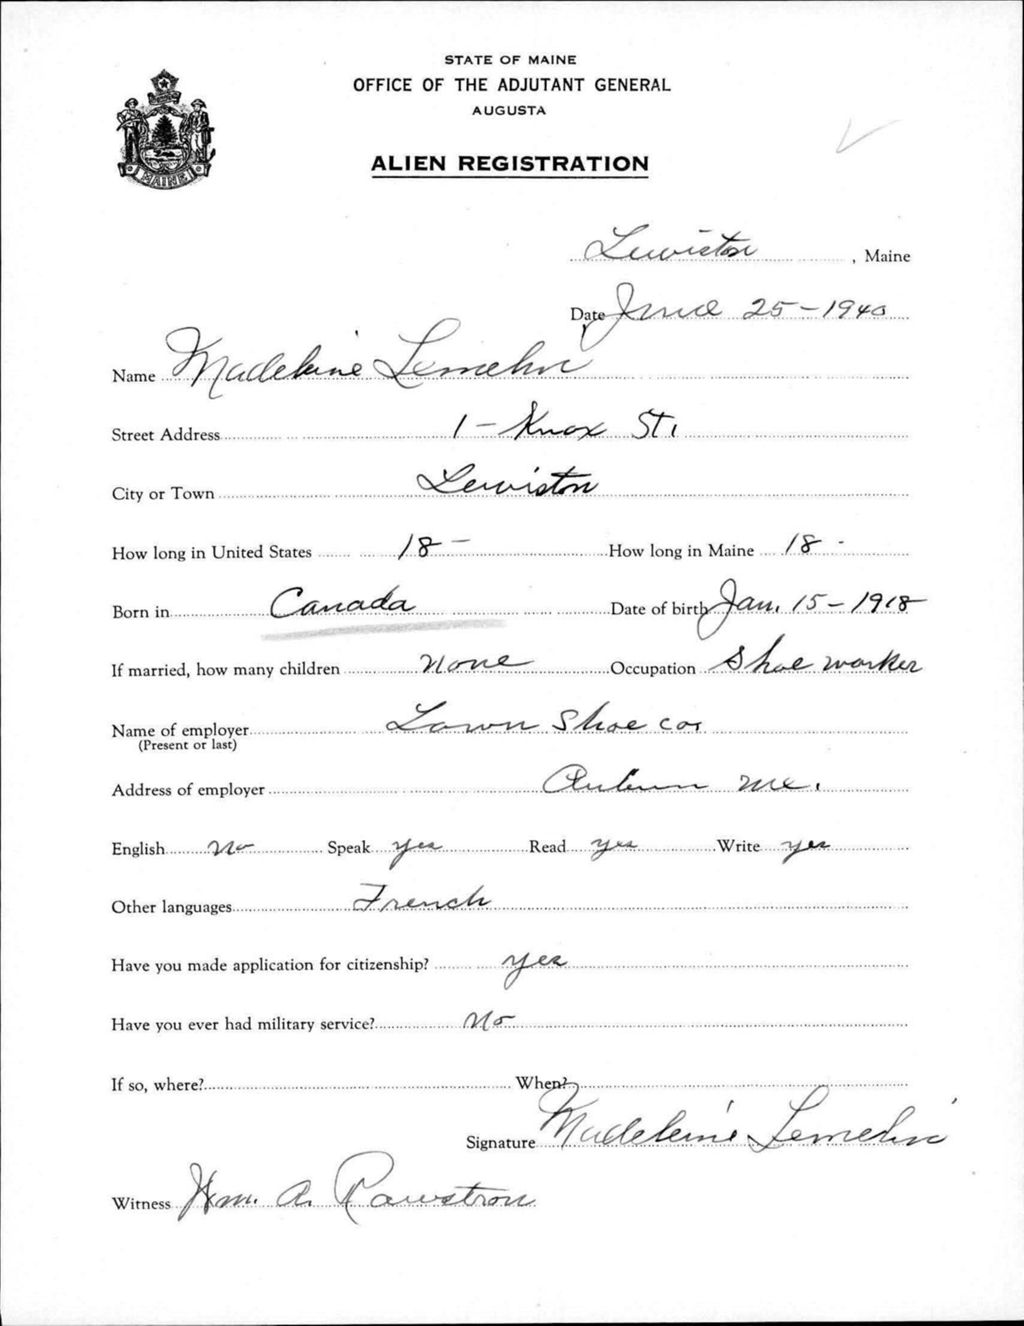 STATE OF MAINE
OFFICE OF THE ADJUTANT GENERAL
AUGUSTA
ALIEN REGISTRATION
MAINE
Lewiston, Maine
Date June 25-1940
Name Madeleine
Street Address 1 - Knox St.
City or Town Lewiston
How long in United States 18 - How long in Maine 18 -
Born in Canada Date of birth Jan. 15 - 1918
If married, how many children None Occupation Shoe worker
Name of employer Lown Shoe Co.
(Present or last)
Address of employer Auburn Me.
English No Speak yes Read yes Write yes
Other languages French
Have you made application for citizenship? yes
Have you ever had military service? No
If so, where? When?
Signature Madeleine
Witness Wm. A. Rawstron